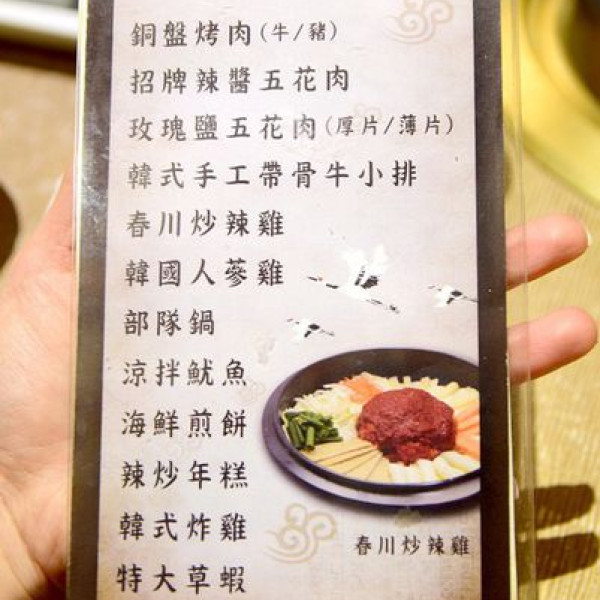 銅盤烤肉(牛/豬)
招牌辣醬五花肉
玫瑰鹽五花肉(厚片/薄片)
韓式手工帶骨牛小排
春川炒辣雞
韓國人蔘雞
部隊鍋
涼拌魷魚
海鮮煎餅
辣炒年糕
韓式炸雞
春川炒辣雞
特大草蝦